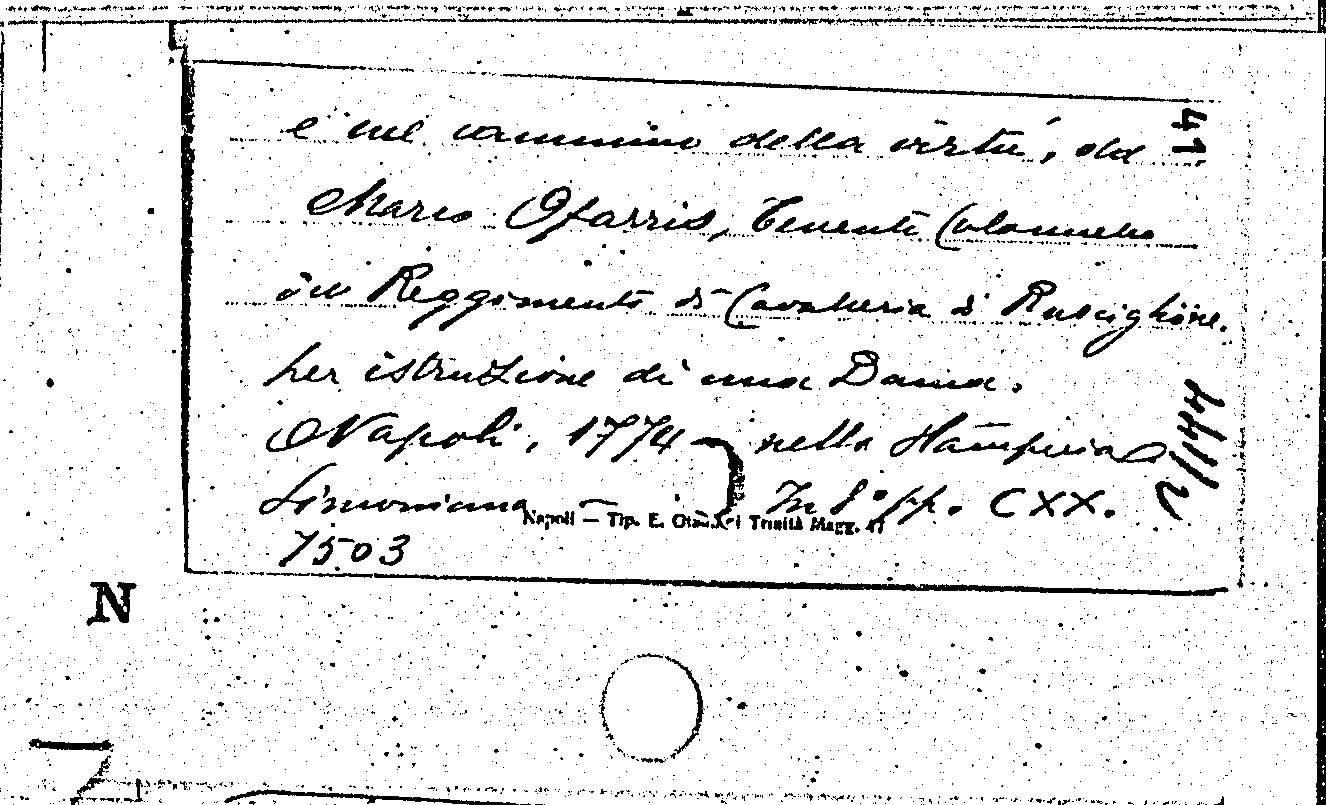 e nel cammino della virtù, da
Marco Ofarris, Tenente Colonnello
in Reggimento di Cavalleria di Rusciglione.
per istruzione di una Dama.
Napoli, 1774 — nella Stamperia
Simoniana — In 8° pp. CXX.
Napoli — Tip. E. Trinità Magg. 47
7503
41
N